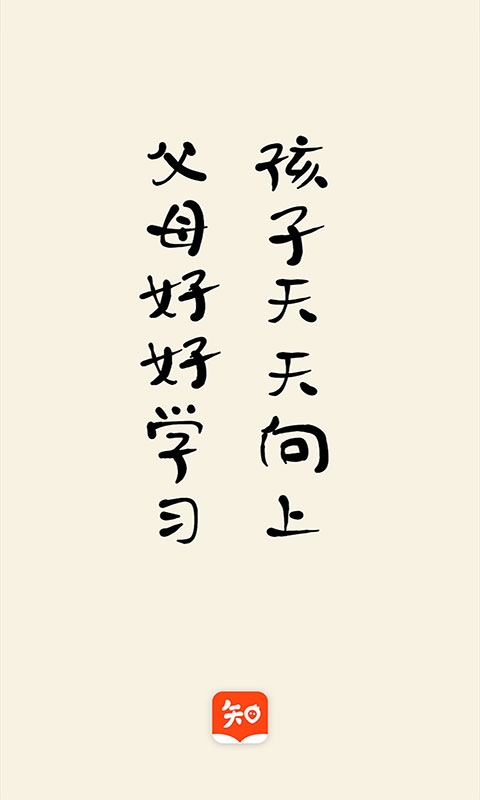 父母好好学习
孩子天天向上
知